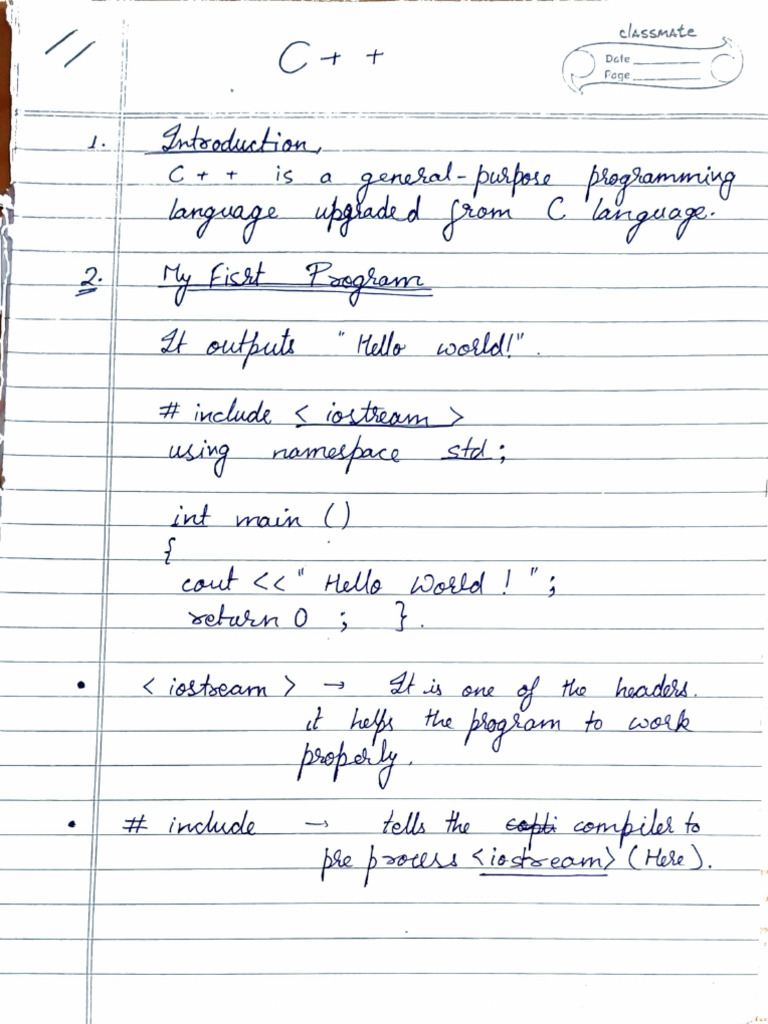 classmate
C + +
Date
Page
1. Introduction,
C + + is a general-purpose programming
language upgraded from C language.
2. My Fisrt Program
It outputs "Hello world!".
# include < iostream >
using namespace std;
int main ()
{
cout << " Hello World ! ";
return 0 ; }.
• < iostream > → It is one of the headers.
it helps the program to work
properly.
• # include → tells the compiler to
pre process <iostream> (Here).